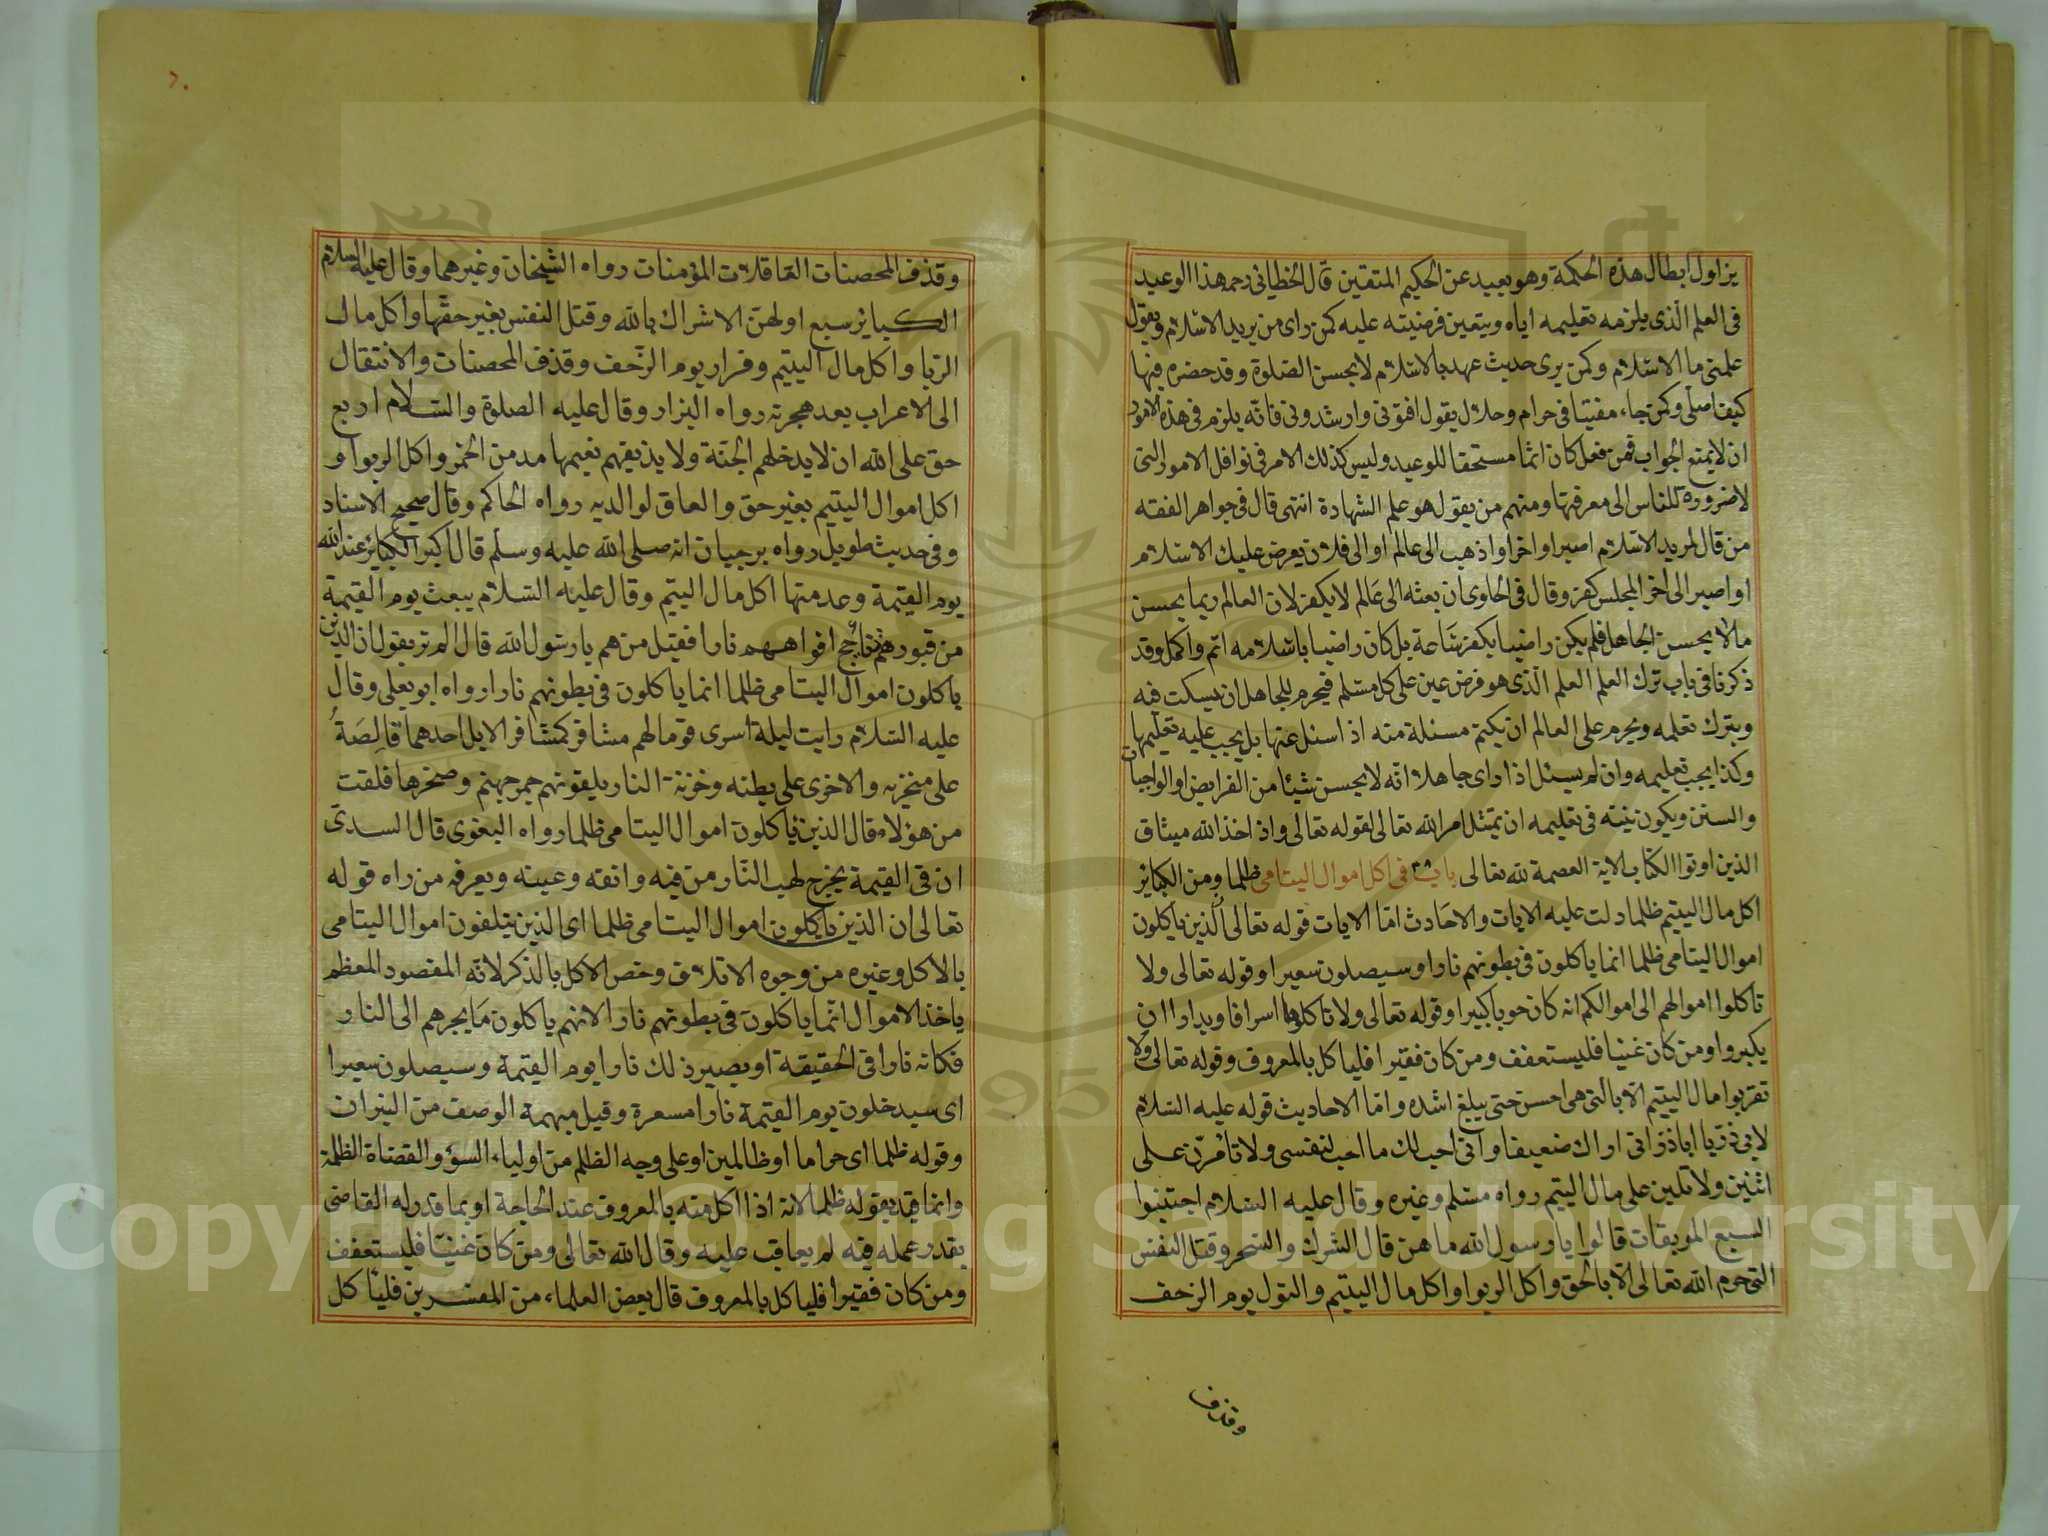 يزاول ابطال هذه الحكمة وهو بعيد عن الحكيم المتقين قال الخطابى رحمه هذا الوعيد
فى العلم الذى يلزمه تعليمه اياه ويتعين فرضيته عليه كمن راى من يريد الاسلام ويقول
علمنى ما الاسلام وكمن يرى حديث عهد بالاسلام لا يحسن الصلوة وقد حضره فيها
كيف اصلى وكمن جاء مفتيا فى حرام وحلال يقول افتونى وارشدونى فانه يلزم فى هذه الامور
ان لا يمنع الجواب فمن فعل كان اثما مستحقا للوعيد وليس كذلك الامر فى نوافل الامور التى
لا ضرورة للناس الى معرفتها ومنهم من يقول هو علم الشهادة انتهى قال فى جواهر الفقه
من قال لمريد الاسلام اصبر او اخر او اذهب الى عالم او الى فلان يعرض عليك الاسلام
او اصبر الى اخر المجلس كفر وقال فى الحاوى ان بعثه الى عالم لا يكفر لان العالم ربما يحسن
ما لا يحسن الجاهل فلم يكن راضيا بكفر ساعة بل كان راضيا باسلامه اتم واكمل وقد
ذكرنا فى باب ترك العلم العلم الذى هو فرض عين على كل مسلم فيحرم للجاهل ان يسكت فيه
ويترك تعلمه ويحرم على العالم ان يكتم مسئلة منه اذ اسئل عنها بل يجب عليه تعليمها
وكذا يجب تعليمه وان لم يسئل اذا راى جاهلا انه لا يحسن شيئا من الفرايض او الواجبات
والسنن ويكون نيته فى تعليمه ان يمتثل امر الله تعالى لقوله تعالى واذ اخذ الله ميثاق
الذين اوتوا الكتاب الاية العصمة لله تعالى باب فى اكل اموال اليتامى ظلما ومن الكبائر
اكل مال اليتيم ظلما دلت عليه الايات والاحادث اما الايات قوله تعالى الذين ياكلون
اموال اليتامى ظلما انما ياكلون فى بطونهم نارا وسيصلون سعيرا وقوله تعالى ولا
تاكلوا اموالهم الى اموالكم انه كان حوبا كبيرا وقوله تعالى ولا تاكلوها اسرافا وبدارا ان
يكبروا ومن كان غنيا فليستعفف ومن كان فقيرا فلياكل بالمعروف وقوله تعالى ولا
تقربوا مال اليتيم الا بالتى هى احسن حتى يبلغ اشده واما الاحاديث قوله عليه السلام
لابى ذر يا اباذر انى اراك ضعيفا وانى احب لك ما احب لنفسى ولا تامرن على
اثنين ولا تلين على مال اليتيم رواه مسلم وغيره وقال عليه السلام اجتنبوا
السبع الموبقات قالوا يا رسول الله ما هن قال الشرك والسحر وقتل النفس
التى حرم الله تعالى الا بالحق واكل الربوا واكل مال اليتيم والتول يوم الزحف
وقذف
٦٠
وقذف المحصنات الغافلات المؤمنات رواه الشيخان وغيرهما وقال عليه السلام
الكبائر سبع اولهن الاشراك بالله وقتل النفس بغير حقها واكل مال
الربا واكل مال اليتيم وفرار يوم الزحف وقذف المحصنات والانتقال
الى الاعراب بعد هجرته رواه البزار وقال عليه الصلوة والسلام اربع
حق على الله ان لا يدخلهم الجنة ولا يذيقهم نعيمها مدمن الخمر واكل الربوا و
اكل اموال اليتيم بغير حق والعاق لوالديه رواه الحاكم وقال صحيح الاسناد
وفى حديث طويل رواه برحبان انه صلى الله عليه وسلم قال اكبر الكبائر عند الله
يوم القيمة وعد منها اكل مال اليتيم وقال عليه السلام يبعث يوم القيمة
من قبورهم تاجج افواههم نارا فقيل من هم يا رسول الله قال الم تر يقول ان الذين
ياكلون اموال اليتامى ظلما انما ياكلون فى بطونهم نارا رواه ابو يعلى وقال
عليه السلام رايت ليلة اسرى قوما لهم مشافر كمشافر الابل احدهما قالصة
على منخريه والاخرى على بطنه وخزنة النار يلقونهم جمر جهنم وصخرها فلقت
من هؤلاء قال الذين ياكلون اموال اليتامى ظلما رواه البغوى قال السدى
ان فى القيمة يخرج لهب النار من فيه وانفه وعينه ويعرفه من راه قوله
تعالى ان الذين ياكلون اموال اليتامى ظلما اى الذين يتلفون اموال اليتامى
بالاكل وغيره من وجوه الاتلاف وخص الاكل بالذكر لانه المقصود المعظم
ياخذ الاموال انما ياكلون فى بطونهم نارا لانهم ياكلون ما يجرهم الى النار
فكانه نارا فى الحقيقة او يصير ذلك نارا يوم القيمة وسيصلون سعيرا
اى سيدخلون يوم القيمة نارا مسعرة وقيل مبهمة الوصف من النيران
وقوله ظلما اى حراما او ظالمين او على وجه الظلم من اولياء السؤ والقضاة الظلمة
وانما قيد بقوله ظلما لانه اذا اكل منه بالمعروف عند الحاجة او بما قدر له القاضى
بقدر عمله فيه لم يعاقب عليه وقال الله تعالى ومن كان غنيا فليستعفف
ومن كان فقيرا فلياكل بالمعروف قال بعض العلماء من المفسرين فلياكل
Copyright © King Saud University